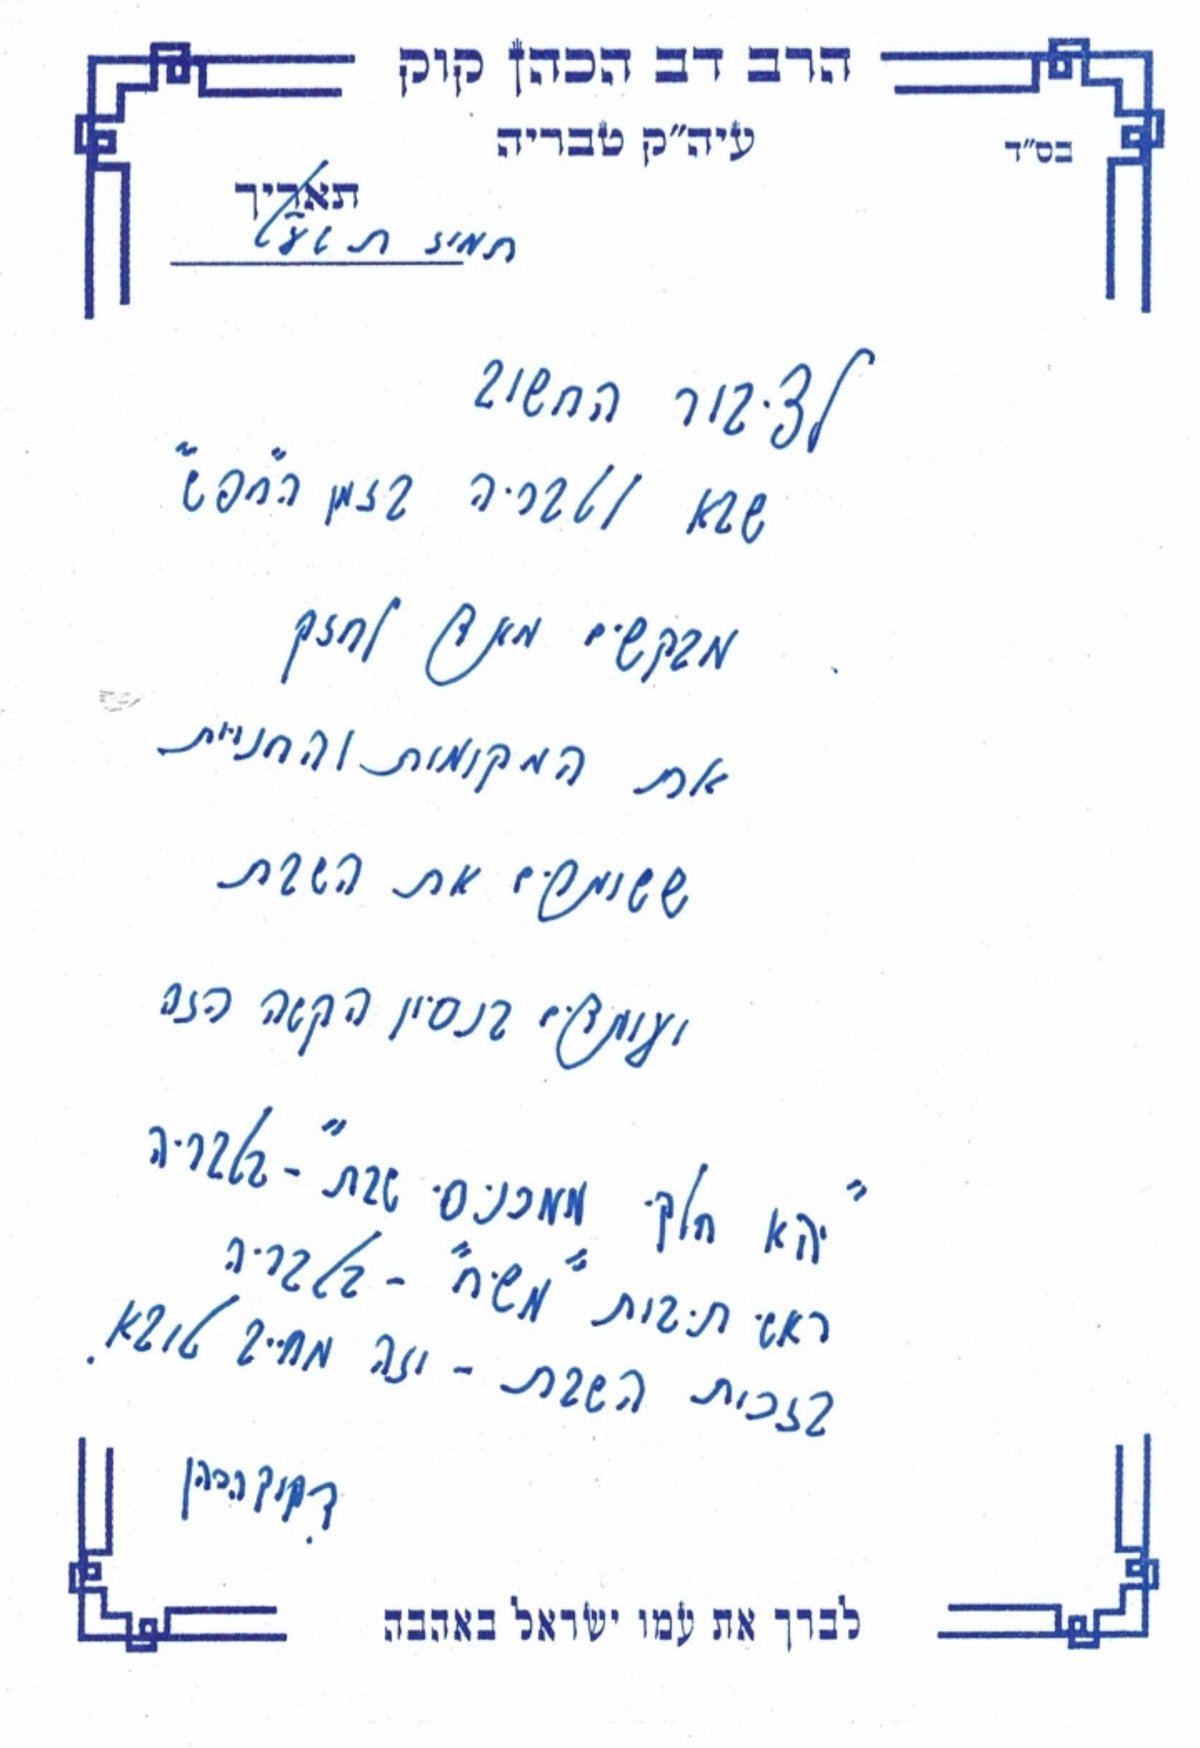 הרב דב הכהן קוק
עיה"ק טבריה
בס"ד
תאריך
תמיז תשע"ט
לציבור החשוב
שבא לטבריה בזמן ה"חפש"
מבקשים מאד לחזק
את המקומות והחנויות
ששומרים את השבת
ועומדים בנסיון הקשה הזה
"יהא חלקי ממכניסי שבת" - בטבריה
ראשי תיבות "משיח" - בטבריה
בזכות השבת - וזה מחייב טובא.
ד. קוק הכהן
לברך את עמו ישראל באהבה